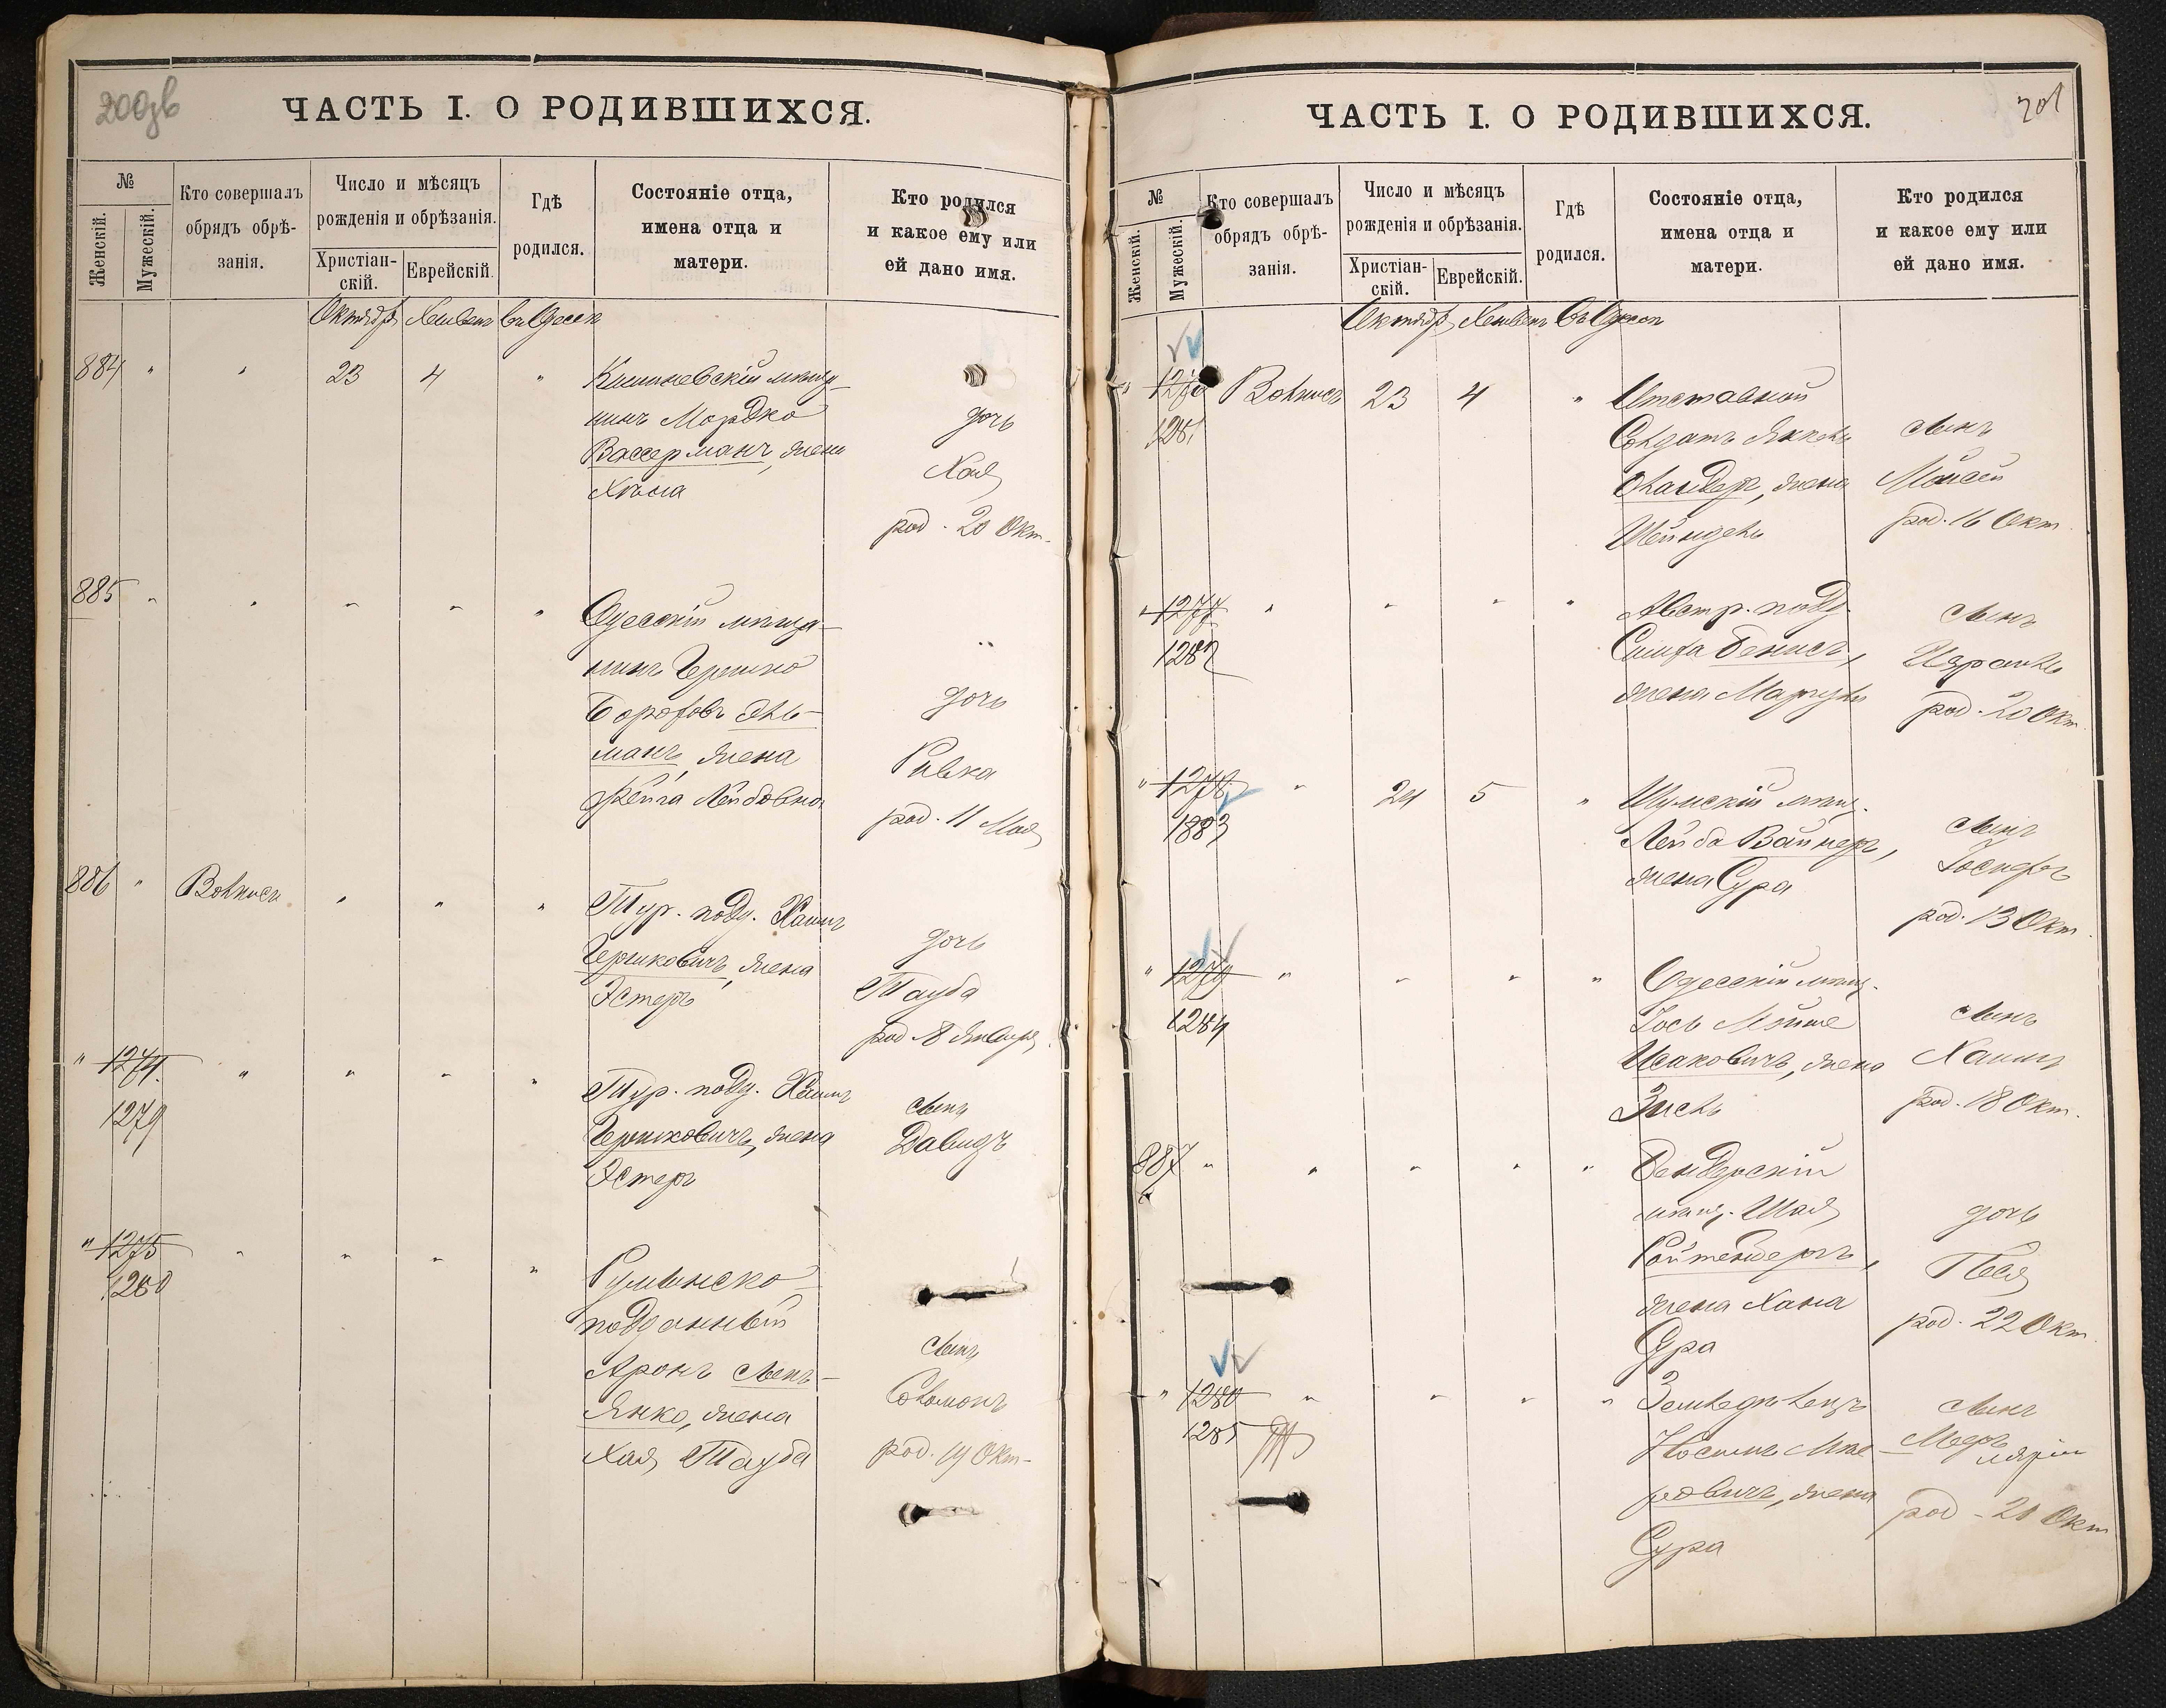 200об
ЧАСТЬ I. О РОДИВШИХСЯ.
№
Женскій.
Мужескій.
Кто совершалъ
обрядъ обрѣ-
занія.
Число и мѣсяцъ
рожденія и обрѣзанія.
Христіан-
скій.
Еврейскій.
Гдѣ
родился.
Состояніе отца,
имена отца и
матери.
Кто родился
и какое ему или
ей дано имя.
Октябр Хешвен въ Одессѣ
884 " " 23 4 " Кишиневскій мѣща-
нинъ Мордко
Вассерманъ, жена
дочь
Хая
род. 20 Окт.
885 " " " " " Одесскій мѣща-
нинъ Гершко
жена
манъ, Лейбовна
дочь
Ривка
род. 11 Мая
886 " " " " Тур.подд. Хаимъ
Гершковичъ, жена
Эстеръ
дочь
Тауба
род 8 Января
" 1274 " " " " Тур. подд. Хаимъ
1279
Гершковичъ, жена
Эстеръ
сынъ
Давидъ
" 1275 " " " " Румынско-
1280
подданный
Аронъ
Янко, жена
Хая Тауба
сынъ
Соломонъ
род. 19 Окт.
201
ЧАСТЬ I. О РОДИВШИХСЯ.
№
Женскій.
Мужескій.
Кто совершалъ
обрядъ обрѣ-
занія.
Число и мѣсяцъ
рожденія и обрѣзанія.
Христіан-
скій.
Еврейскій.
Гдѣ
родился.
Состояніе отца,
имена отца и
матери.
Кто родился
и какое ему или
ей дано имя.
Октябр Хешвен въ Одессѣ
" 1276 23 4 " Отставной
1281
Солдатъ Янкель
жена
Шейндель
сынъ
Мойсей
род. 16 Окт.
" 1277 " " " " Австр. подд.
1282
жена
сынъ
Израиль
род. 20 Окт.
" 1278 " 24 5 " Шумскій мѣщ.
1283
Лейба Вайнеръ,
жена Сура
сынъ
Іосифъ
род. 13 Окт.
" 1279 " " " " Одесскій мѣщ.
1284
Исаковичъ, жена
Зисль
сынъ
Хаимъ
род. 18 Окт.
887 " " " " " Бендерскій
мѣщ. Шая
Ройтенбергъ,
жена Хана
Сура
дочь
Песя
род. 22 Окт.
" 1280 " " " " Земледѣлецъ
1285
жена
Сура
сынъ
род. Окт.